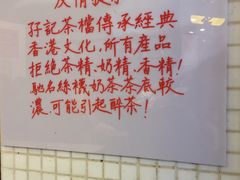 友情提示
孖記茶檔傳承經典
香港文化,所有産品
拒絕茶精、奶精、香精!
馳名絲襪奶茶茶底較
濃,可能引起醉茶!